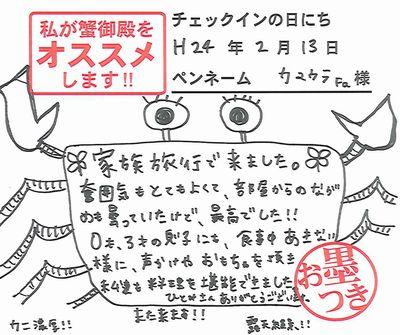 私が蟹御殿を
オススメ
します!!
チェックインの日にち
H24年2月13日
ペンネーム カマケラFa様
家族旅行で来ました。
雰囲気もとてもよくて、部屋からのなが
めも曇っていたけど、最高でした!!
0才、3才の息子にも、食事中あきない
様に、声かけやおもちゃを頂き
私達も料理を堪能できました。
ひとみさんありがとうございました
また来ます!!
お墨
つき
カニ濃厚!!
露天風呂!!